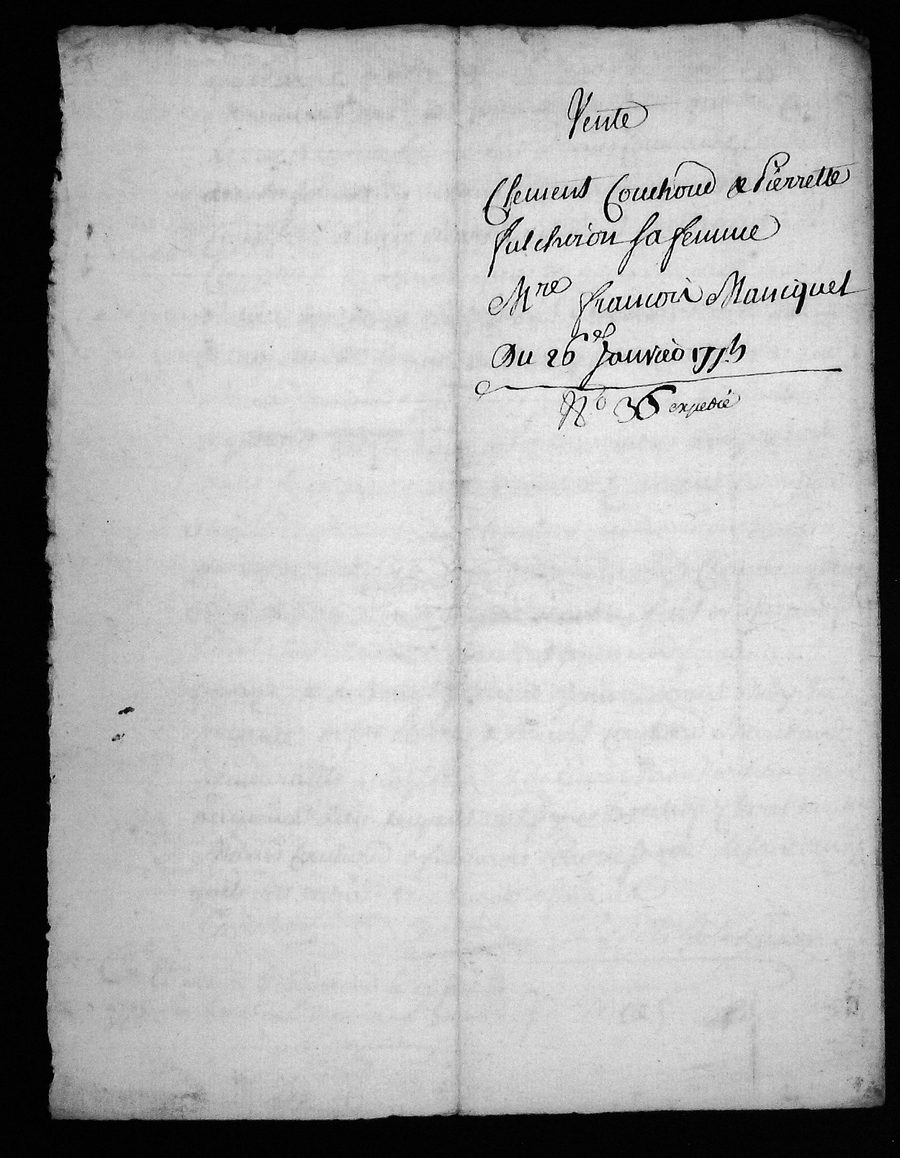 Vente
Clement Couchoud & Pierrette
fulcheron sa femme
Mre francois Maniquet
Du 26 Janvier 1775
No 36 expedié